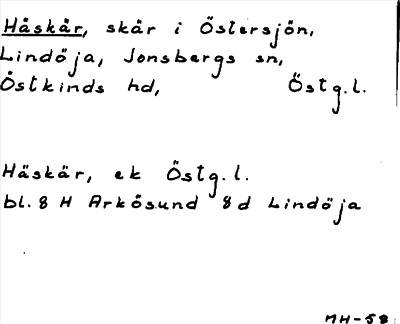 Håskär, skär i Östersjön,
Lindöja, Jonsbergs sn,
Östkinds hd, Östg.l.
Häskär, ek Östg.l.
bl. 8 H Arkösund 8d Lindöja
MH-58